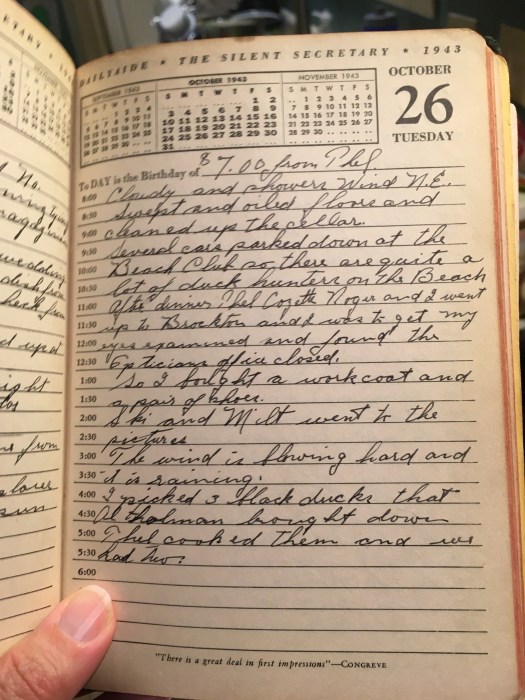 DAILYAIDE ★ THE SILENT SECRETARY ★ 1943
SEPTEMBER 1943
OCTOBER 1943
NOVEMBER 1943
S M T W T F S
1 2
3 4 5 6 7 8 9
10 11 12 13 14 15 16
17 18 19 20 21 22 23
24 25 26 27 28 29 30
31
S M T W T F S
1 2 3 4 5 6
7 8 9 10 11 12 13
14 15 16 17 18 19 20
21 22 23 24 25 26 27
28 29 30
OCTOBER
26
TUESDAY
To DAY is the Birthday of $7.00 from Thel
8:00 Cloudy and showers Wind N.E.
8:30 Swept and oiled floors and
9:00 cleaned up the cellar.
9:30 Several cars parked down at the
10:00 Beach Club so there are quite a
10:30 lot of duck hunters on the Beach
11:00 After dinner Thel Cozette Roger and I went
11:30 up to Brockton and I was to get my
12:00 eyes examined and found the
12:30 Opticians office closed.
1:00 So I bought a work coat and
1:30 a pair of shoes.
2:00 Ski and Milt went to the
2:30 pictures
3:00 The wind is blowing hard and
3:30 it is raining.
4:00 I picked 3 black ducks that
4:30 Al tholman brought down
5:00 Thel cooked them and we
5:30 had two.
6:00
"There is a great deal in first impressions"—CONGREVE